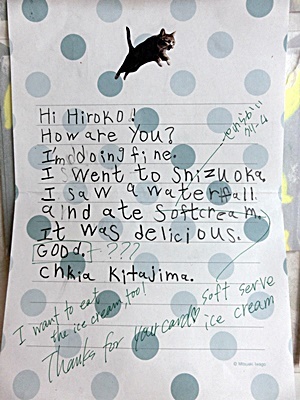 Hi Hiroko!
How are You?
I'm doing fine.
I went to Shizuoka.
I saw a waterfall.
and ate softcream.
It was delicious.
GOOd. ← ???
Kitajima.
I want to eat
the ice cream, too!
soft serve
ice cream
Thanks for your card♡